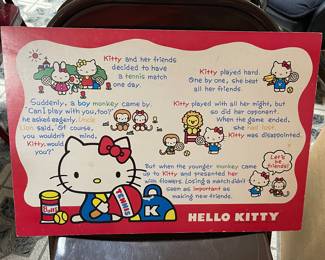 Kitty and her friends
decided to have
a tennis match
one day.
Kitty played hard.
One by one, she beat
all her friends.
Suddenly, a boy monkey came by.
"Can I play with you, too?"
he asked eagerly. Uncle
Lion said, "Of course,
you wouldn't mind,
Kitty, would
you?"
Kitty played with all her might, but
so did her opponent.
When the game ended,
she had lost.
Kitty was disappointed.
But when the younger monkey came
up to Kitty and presented her
with flowers, losing a match didn't
seem as important as
making new friends.
Let's
be
friends!
Balls
TENNIS
K
HELLO KITTY